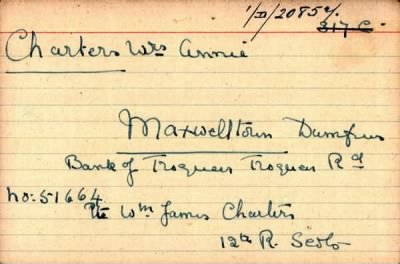 1/D/20857.
317 C
Charters Mrs Annie
Maxwelltown Dumfries
Bank of Troqueer Troqueer Rd
No: 51664
Pte Wm James Charters
12th R. Scots